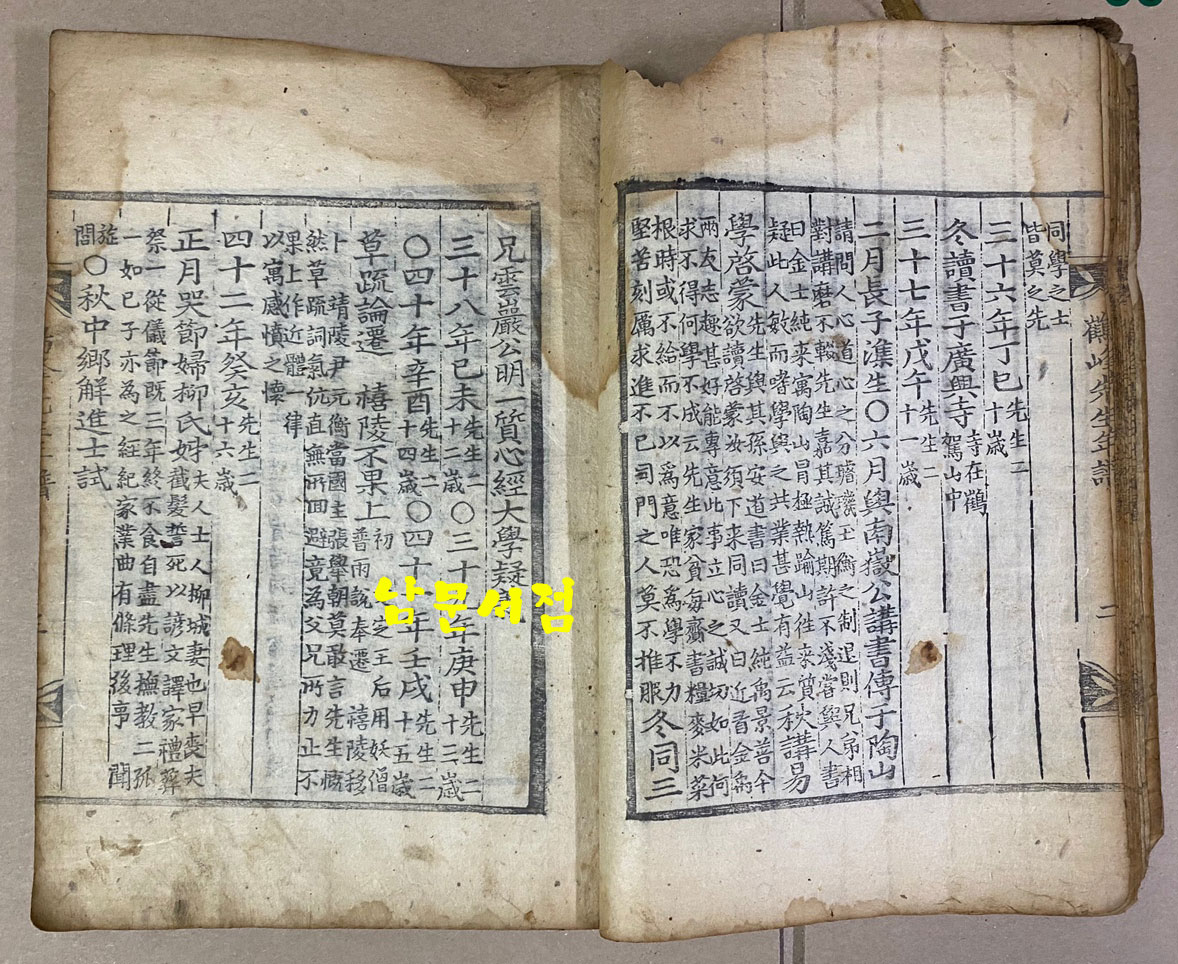 鶴峰先生年譜 二
同學之士
皆莫之先
三十六年丁巳 先生二十歲
冬讀書于廣興寺 寺在鶴駕山中
三十七年戊午 先生二十一歲
二月長子潗生〇六月與南嶽公講書傳于陶山
請問人心道心之分璿璣玉衡之制退則兄弟相
對講磨不輟先生嘉其誠篤期許不淺嘗與人書
曰金士純来寓陶山冒極熱踰山徃来質
疑此人敏而嗜學與之共業甚覺有益云 秋講易
學啓蒙 先生與其孫安道書曰金士純禹景善今
欲讀啓蒙汝須下来同讀又曰近看金禹
兩友志趣甚好能專意此事立心之誠切如此何
求不得何學不成云先生家貧每齎書糧麥米菜
根時或不給而不以爲意唯恐爲學不力
堅苦刻厲求進不已司門之人莫不推服 冬同三
兄雲巖公明一質心經大學疑
三十八年己未 先生二十二歲 〇三十年庚申 先生二十三歲
〇四十年辛酉 先生二十四歲 〇四十年壬戌 先生二十五歲
草疏論遷 禧陵不果上 初 定王后用妖僧
普雨說奉遷 禧陵移
卜 靖陵尹元衡當國主張舉朝莫敢言先生慨
然草疏詞氣伉直無所回避竟為父兄所力止不
果上作近體一律
以寓感憤之懷
四十二年癸亥 先生二十六歲
正月哭節婦柳氏姊 夫人士人柳城妻也早喪夫
截髮誓死以諺文譯家禮葬
祭一從儀節既三年終不食自盡先生撫教二孤
一如己子亦為之經紀家業曲有條理後事 聞
旌閭 〇秋中鄉解進士試
남문서점